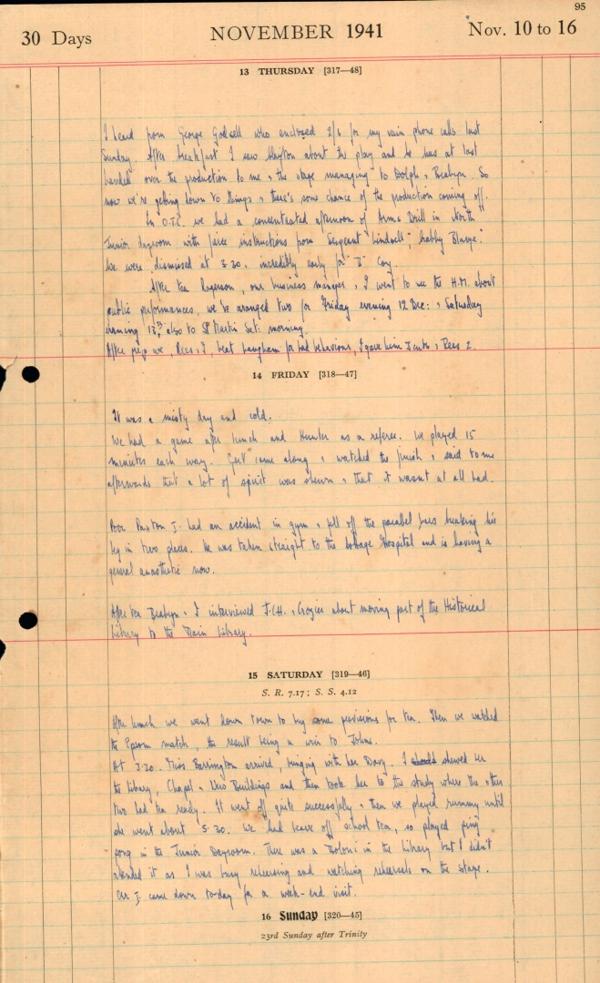 95
30 Days NOVEMBER 1941 Nov. 10 to 16
13 THURSDAY [317—48]
I heard from George Godsell who enclosed 2/6 for my vain phone calls last
Sunday. After breakfast I saw about the play and he has at last
handed over the production to me & the stage managing to Dolph & So
now we're getting down to things & there's some chance of the production coming off.
In O.T.C. we had a concentrated afternoon of Arms Drill in North
Junior Dayroom with fierce instructions from Sergeant
We were dismissed at 3.30. incredibly early for "D" Coy.
After tea, our business manager, & I went to see the H.M. about
public performances, we've arranged two for Friday evening 12 Dec: & Saturday
evening 13th, also to St Martin Sat: morning.
After prep we, Rees & I, beat for bad behaviour, I gave him & Rees 2.
14 FRIDAY [318—47]
It was a misty day and cold.
We had a game after lunch and Hunter as a referee. We played 15
minutes each way. came along & watched the finish & said to me
afterwards that a lot of spirit was shewn & that it wasn't at all bad.
Poor Paxton J. had an accident in gym & fell off the parallel bars breaking his
leg in two places. He was taken straight to the Cottage Hospital and is having a
general anaesthetic now.
After tea & I interviewed J.C.H. & Crozier about moving part of the Historical
Library to the Main Library.
15 SATURDAY [319—46]
S. R. 7.17; S. S. 4.12
After lunch we went down town to buy some provisions for tea. Then we watched
the Epsom match, the result being a win to Johns.
At 3.30. Miss Barrington arrived, bringing with her Davy. I shewed her
the library, Chapel & New Buildings and then took her to the study where the other
two had tea ready. It went off quite successfully & then we played rummy until
she went about 5.30. We had leave off school tea, so played ping
pong in the Junior Dayroom. There was a in the Library but I didn't
attend it as I was busy rehearsing and watching rehearsals on the stage.
J. came down to-day for a week-end visit.
16 Sunday [320—45]
23rd Sunday after Trinity